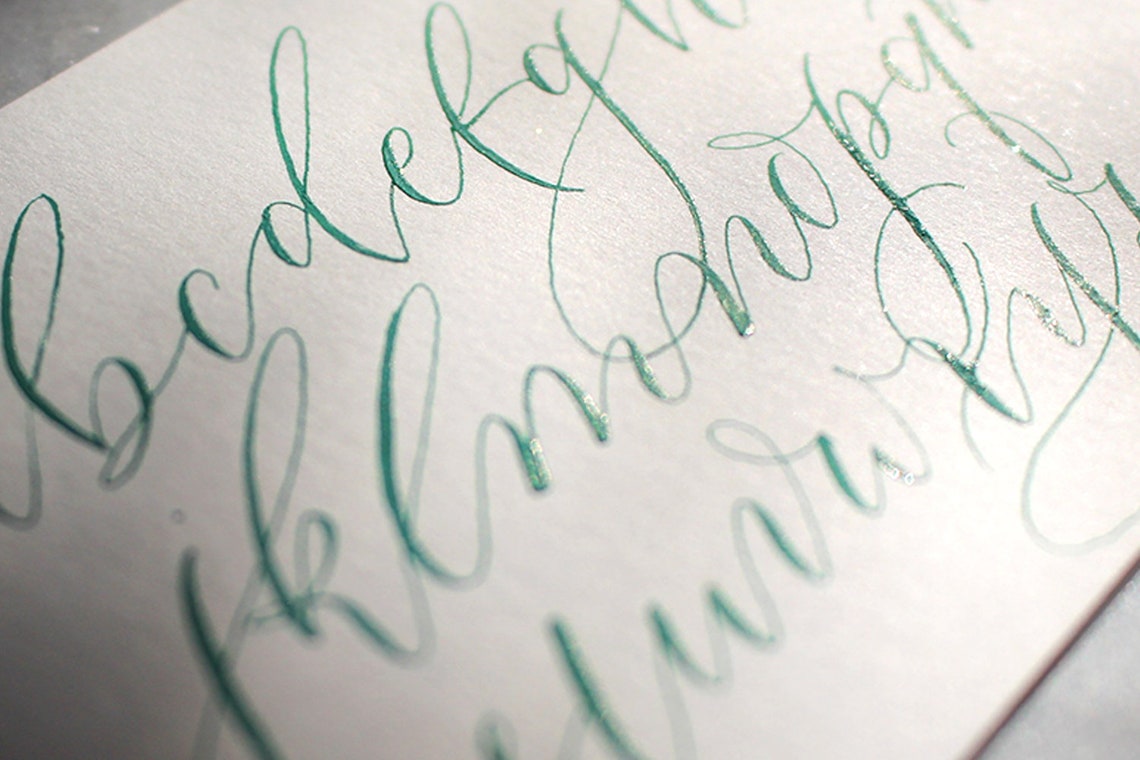 bcdefg
jklmnopq
tuvwxy